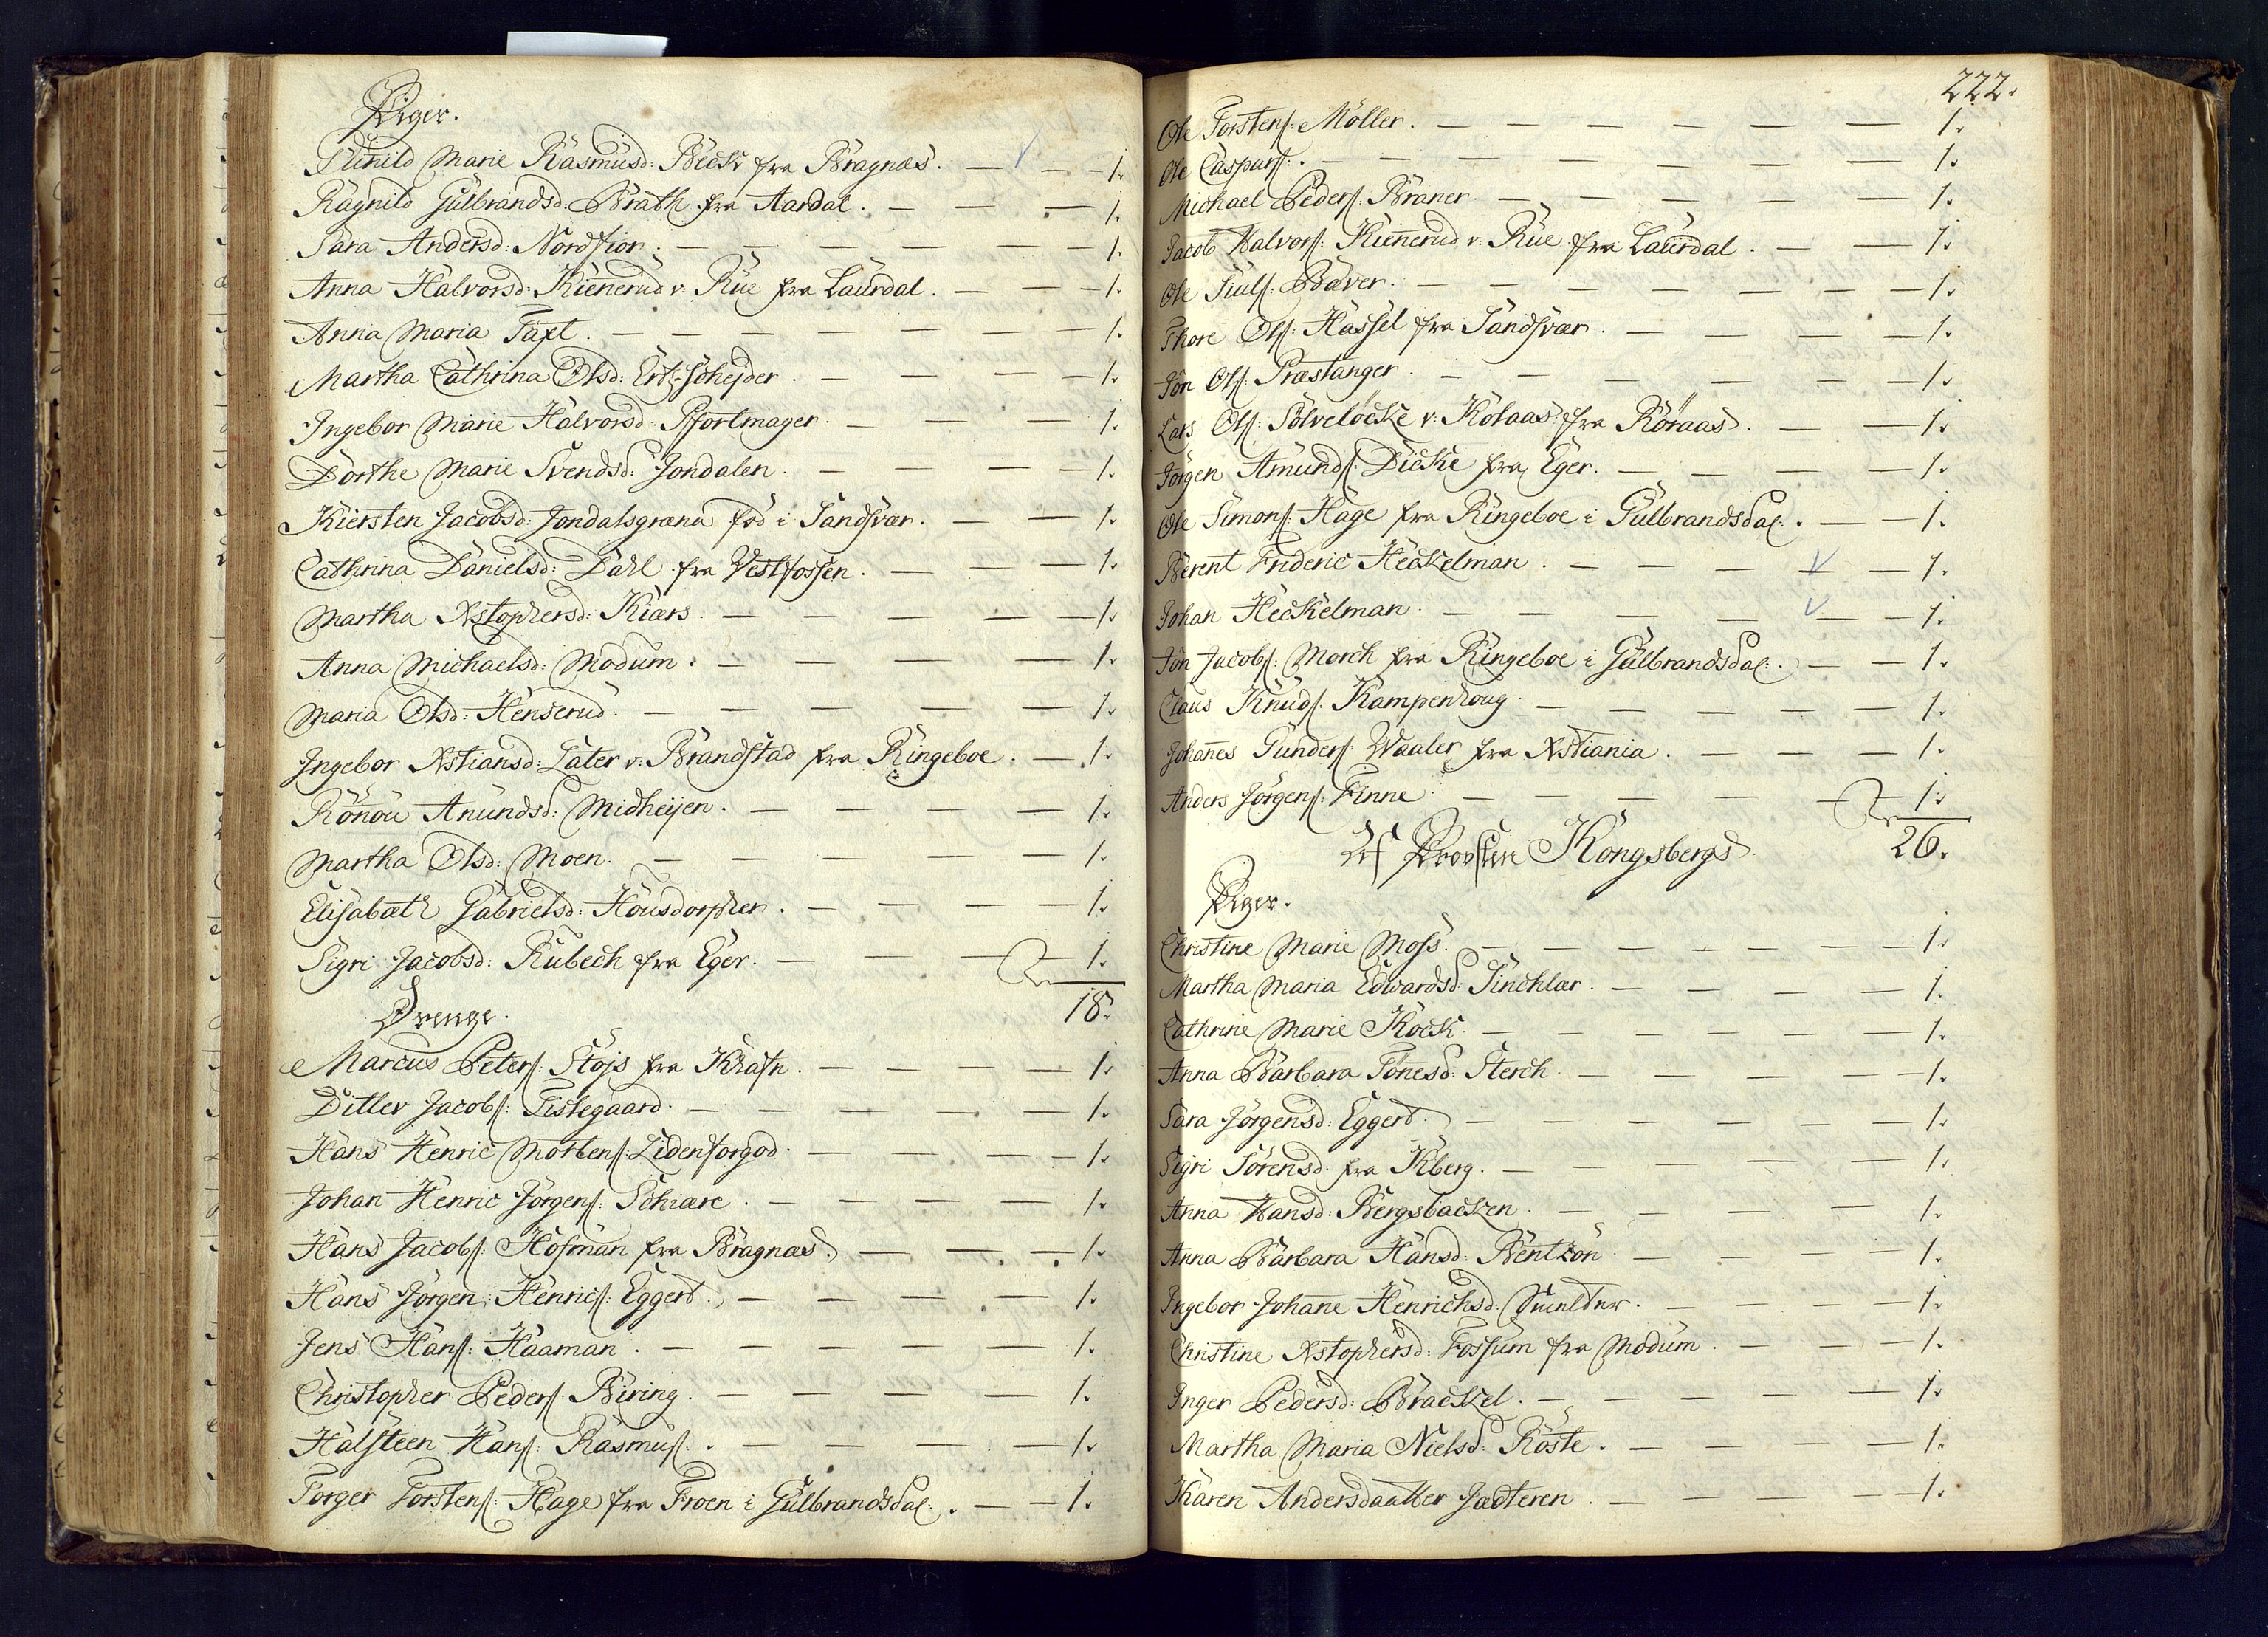 Piger.
Gunild Marie Rasmusd: Beck fra Bragnæs. — — 1.
Ragnild Gulbrandsd: Brath fra Aardal. — — — 1.
Sara Andersd: Nordfior. — — — — — 1.
Anna Halvorsd: Kiennerud v: Rue fra Laurdal. — — — 1.
Anna Maria Taxt. — — — — — — 1.
Martha Cathrina Olsd: Ertz-Schejder. — — — — 1.
Ingebor Marie Halvorsd: Pfortmager. — — — — 1.
Dorthe Marie Svendsd: Jondalen. — — — 1.
Kiersten Jacobsd: Jondalsgræna fød i Sandsvær. — — 1.
Cathrina Danielsd: Dahl fra Vestfossen. — — — 1.
Martha Xstophersd: Kiærs. — — — — — 1.
Anna Michaelsd: Modum. — — — — — 1.
Maria Olsd: Henserud. — — — — — 1.
Ingebor Xstiansd: Later v: Brandstad fra Ringeboe. — 1.
Rönnou Anundsd: Midheijen. — — — — 1.
Martha Olsd: Moen. — — — — — 1.
Elisabæth Gabrielsd: Housdorpher. — — — — 1.
Sigri Jacobsd: Rubech fra Eger. — — — 1.
18.
Drenge.
Marcus Peters: Stojs fra Khafn. — — — — 1.
Ditlev Jacobs: Tislegaard. — — — — — 1.
Hans Henric Mortens: Lidenforgod. — — — — 1.
Johan Henric Jörgens: Schiære. — — — — 1.
Hans Jacobs: Hofman fra Bragnæs. — — — 1.
Hans Jörgen Henrics: Eggert. — — — — 1.
Jens Hans: Haaman. — — — — — 1.
Christopher Peders: Biring. — — — — 1.
Halsteen Hans: Rasmus:. — — — — 1.
Torger Torstens: Hage fra Froen i Gulbrandsdal:. — — 1.
222.
Ole Torstens: Möller. — — — — — — 1.
Ole Caspars:. — — — — — — 1.
Michael Peders: Braner. — — — — — 1.
Jacob Halvors: Kiennerud v: Rue fra Laurdal. — — 1.
Ole Siuls: Bæver. — — — — — — 1.
Thore Ols: Hassel fra Sandsvær. — — — — 1.
Jön Ols: Præstanger. — — — — — 1.
Lars Ols: Sölvelöcke v: Kolaas fra Röraas. — — 1.
Jörgen Amunds: Dicke fra Eger. — — — — 1.
Ole Simons: Hage fra Ringeboe i Gulbrandsdal:. — — 1.
Berent Frideric Heckelman. — — — — — 1.
Johan Heckelman. — — — — — 1.
Jön Jacobs: Morch fra Ringeboe i Gulbrandsdal:. — — 1.
Claus Knuds: Kampenhoug. — — — — — 1.
Johannes Gunders: Waaler fra Xstiania. — — — 1.
Anders Jörgens: Finne. — — — — — 1.
26.
Af Provsten Kongsbergs.
Piger.
Christine Marie Moss. — — — — — — 1.
Martha Maria Edwardsd: Sinchlar. — — — — 1.
Cathrine Marie Kock. — — — — — 1.
Anna Barbara Tönesd: Sterch. — — — — 1.
Sara Jörgensd: Eggert. — — — — — 1.
Sigri Sörensd: fra Kberg. — — — — 1.
Anna Hansd: Bergsbacken. — — — — 1.
Anna Barbara Hansd: Bentzön. — — — — 1.
Ingebor Johane Henrichsd: — — — — 1.
Christine Xstophersd: Fossum fra Modum. — — — 1.
Inger Pedersd: Brackel. — — — — — 1.
Martha Maria Nielsd: Röste. — — — — 1.
Karen Andersdaatter Jædteren. — — — — 1.